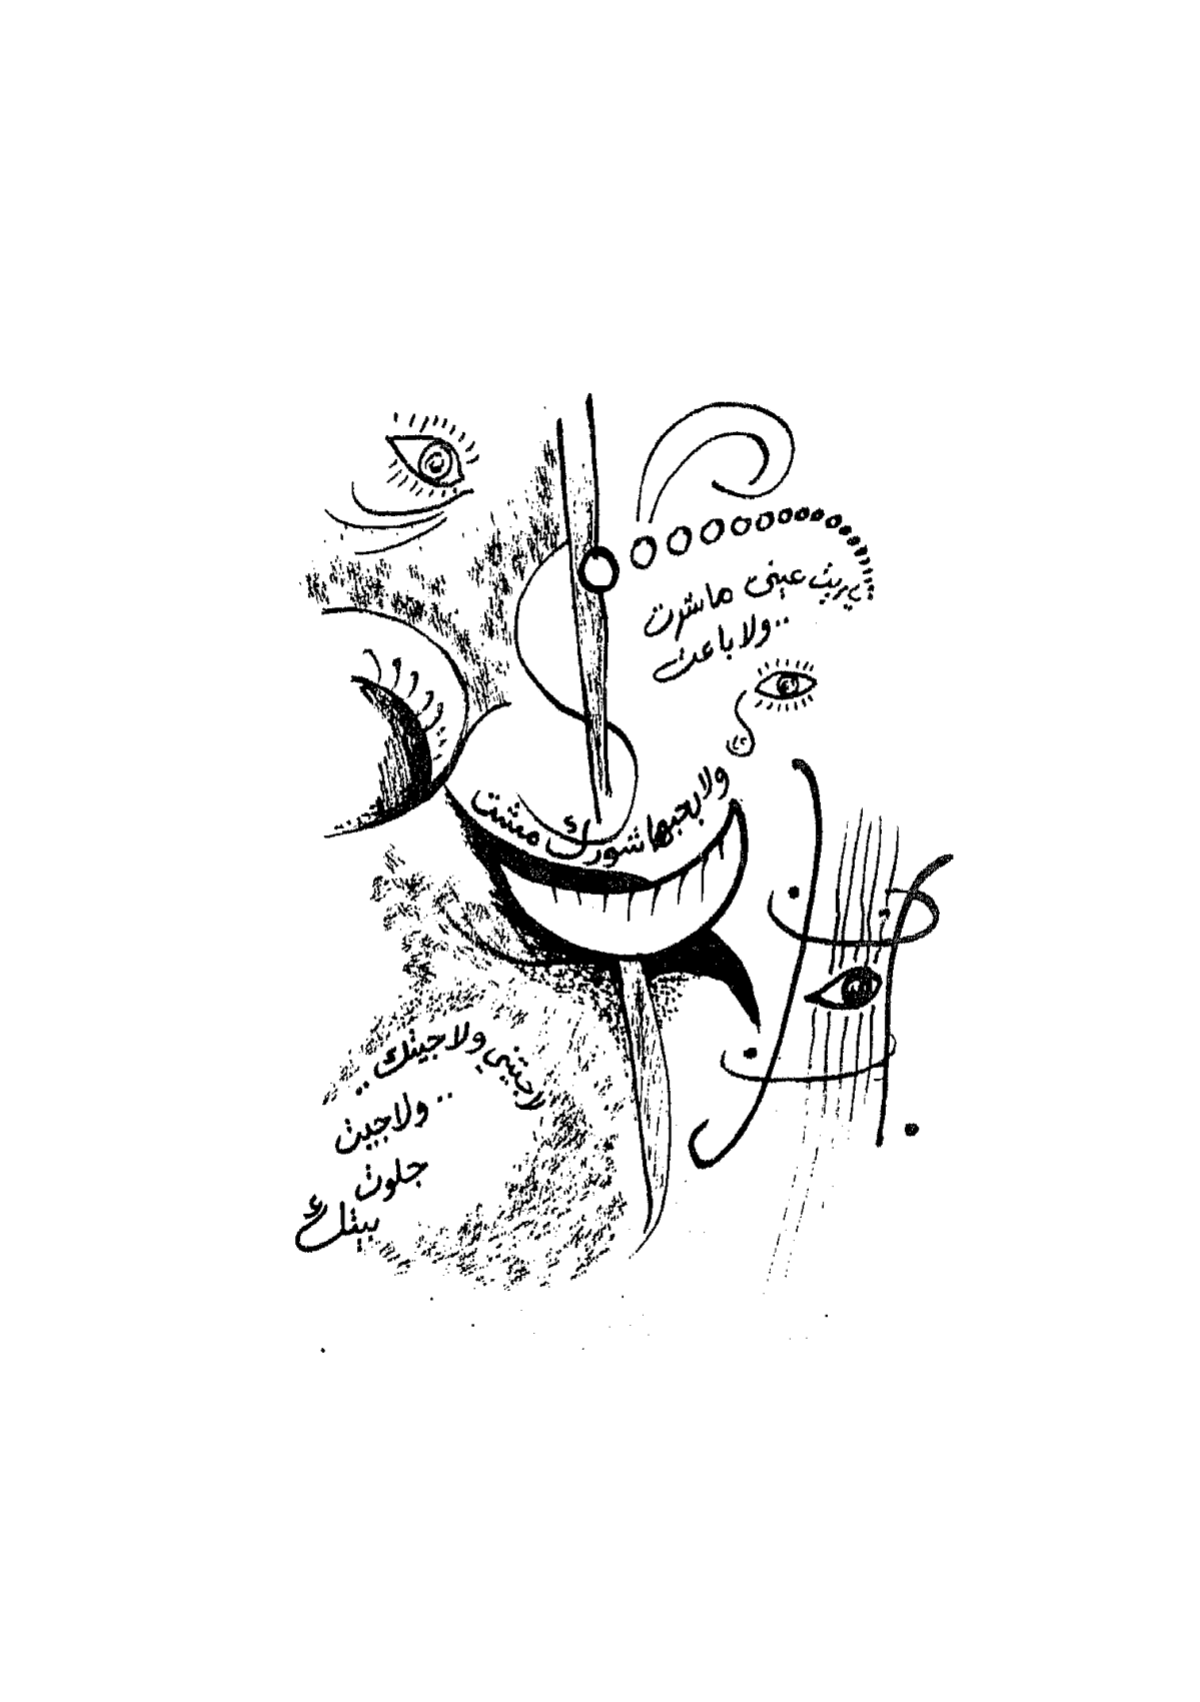 يريت عيني ماشرت
..ولا باعت
ولا بحبها شورك مشت
لا جيتني ولا جيتك..
..ولا جيت
جلوت
بيتك